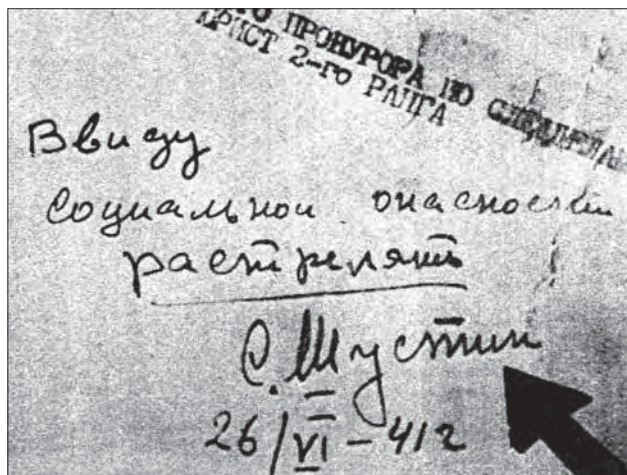 ПРОКУРОРА ПО
ЮРИСТ 2-ГО РАНГА
Ввиду
социальной опасности
растрелять
С. Шустин
26/VI-41г